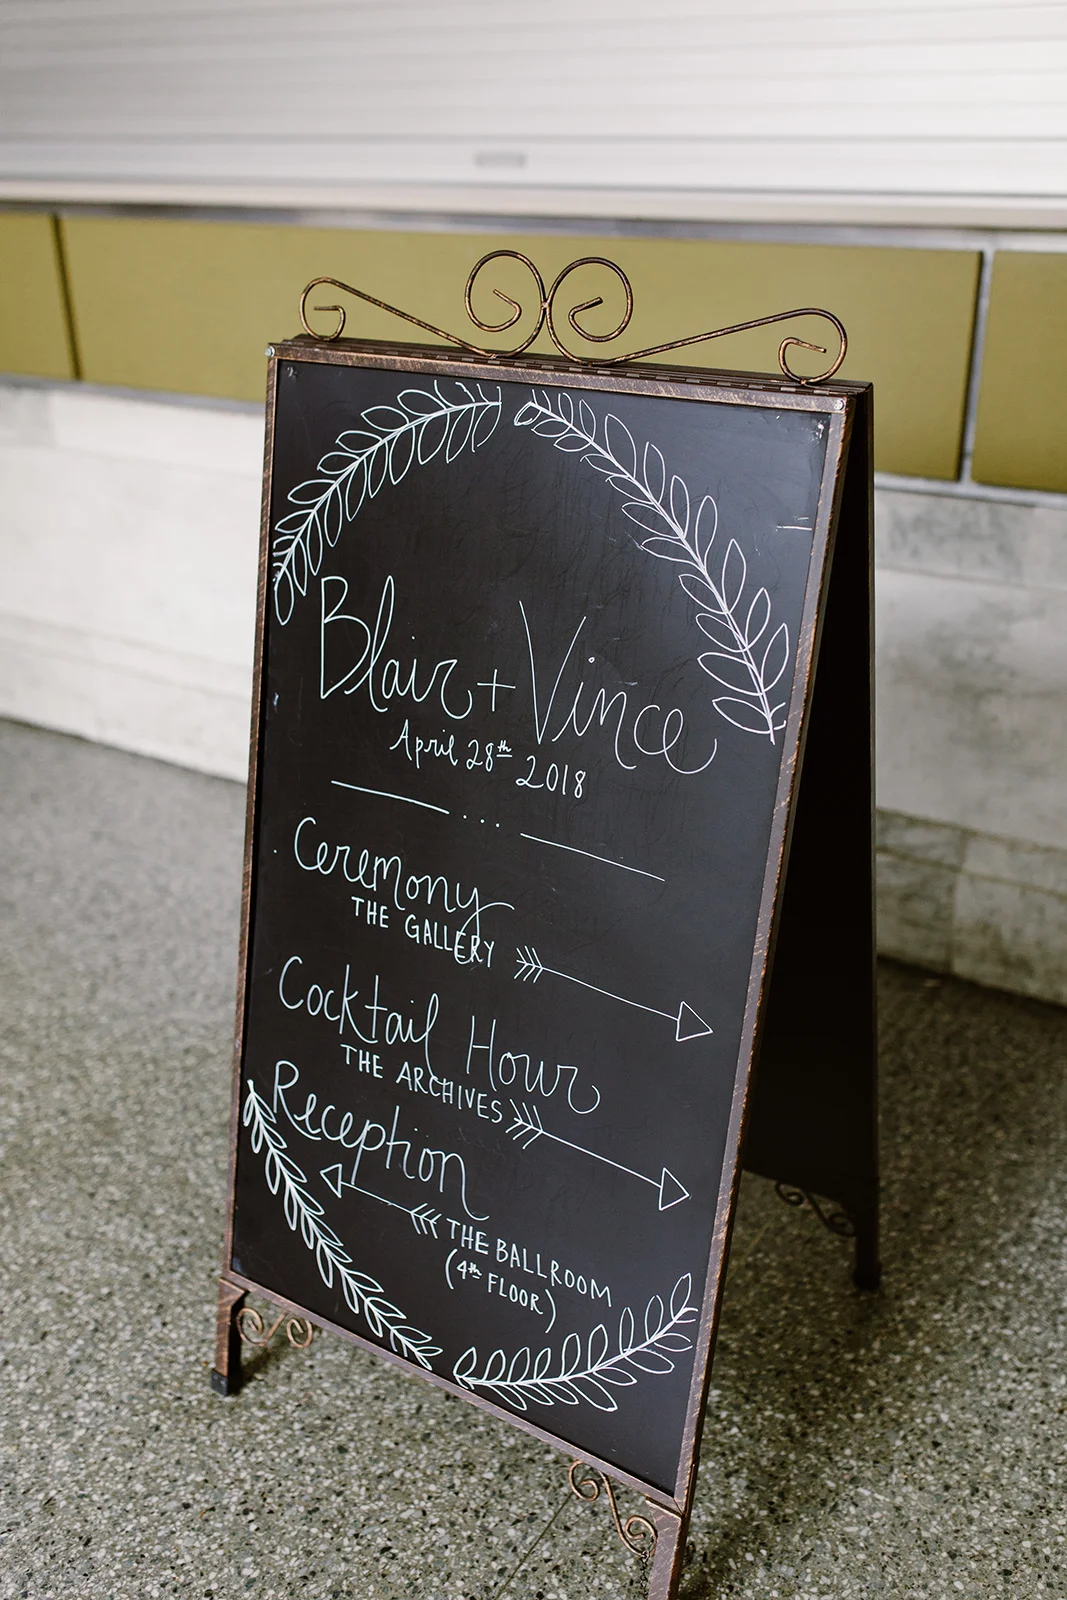 Blair + Vince
April 28th 2018
Ceremony
THE GALLERY
Cocktail Hour
THE ARCHIVES
Reception
THE BALLROOM
(4th FLOOR)